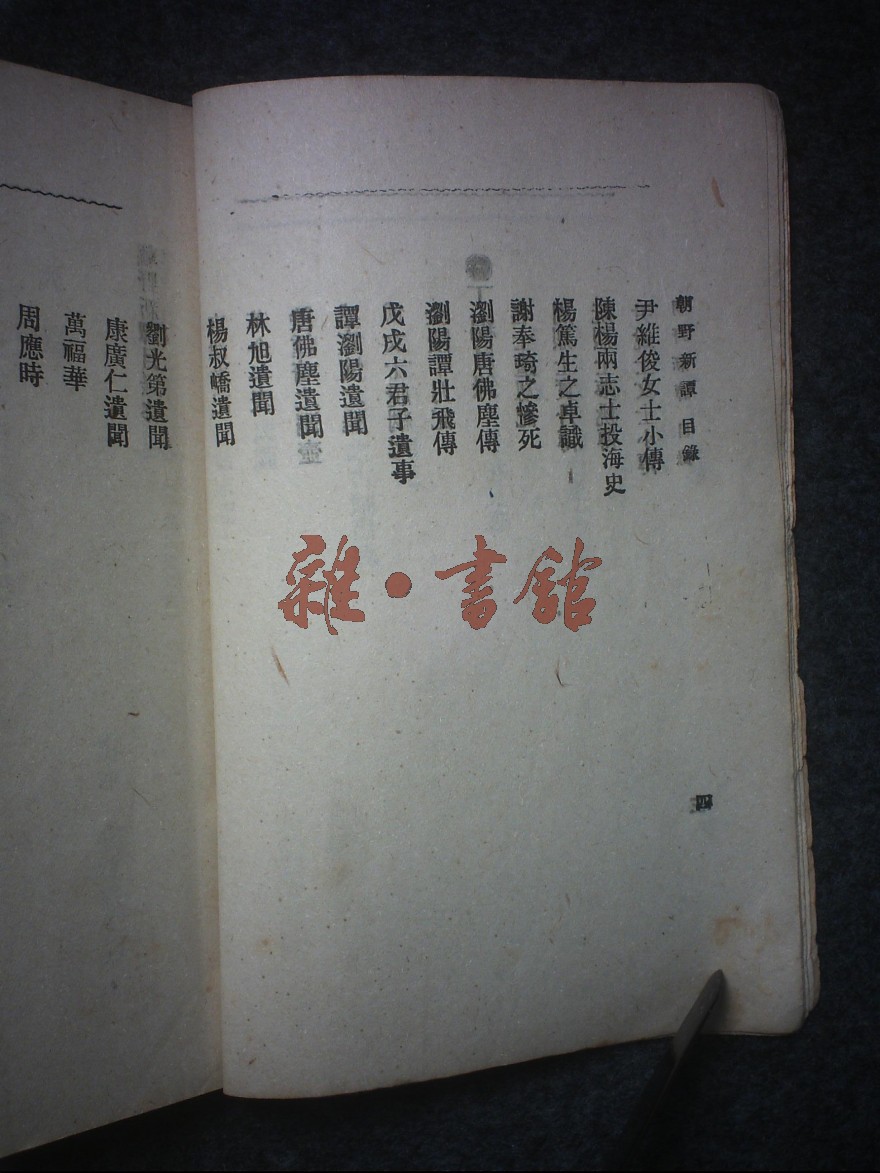 朝野新譚 目錄
尹維俊女士小傳
陳楊兩志士投海史
楊篤生之卓識
謝奉琦之慘死
瀏陽唐佛塵傳
瀏陽譚壯飛傳
戊戌六君子遺事
譚瀏陽遺聞
唐佛塵遺聞
林旭遺聞
楊叔嶠遺聞
劉光第遺聞
康廣仁遺聞
萬福華
周應時
四
雜·書館